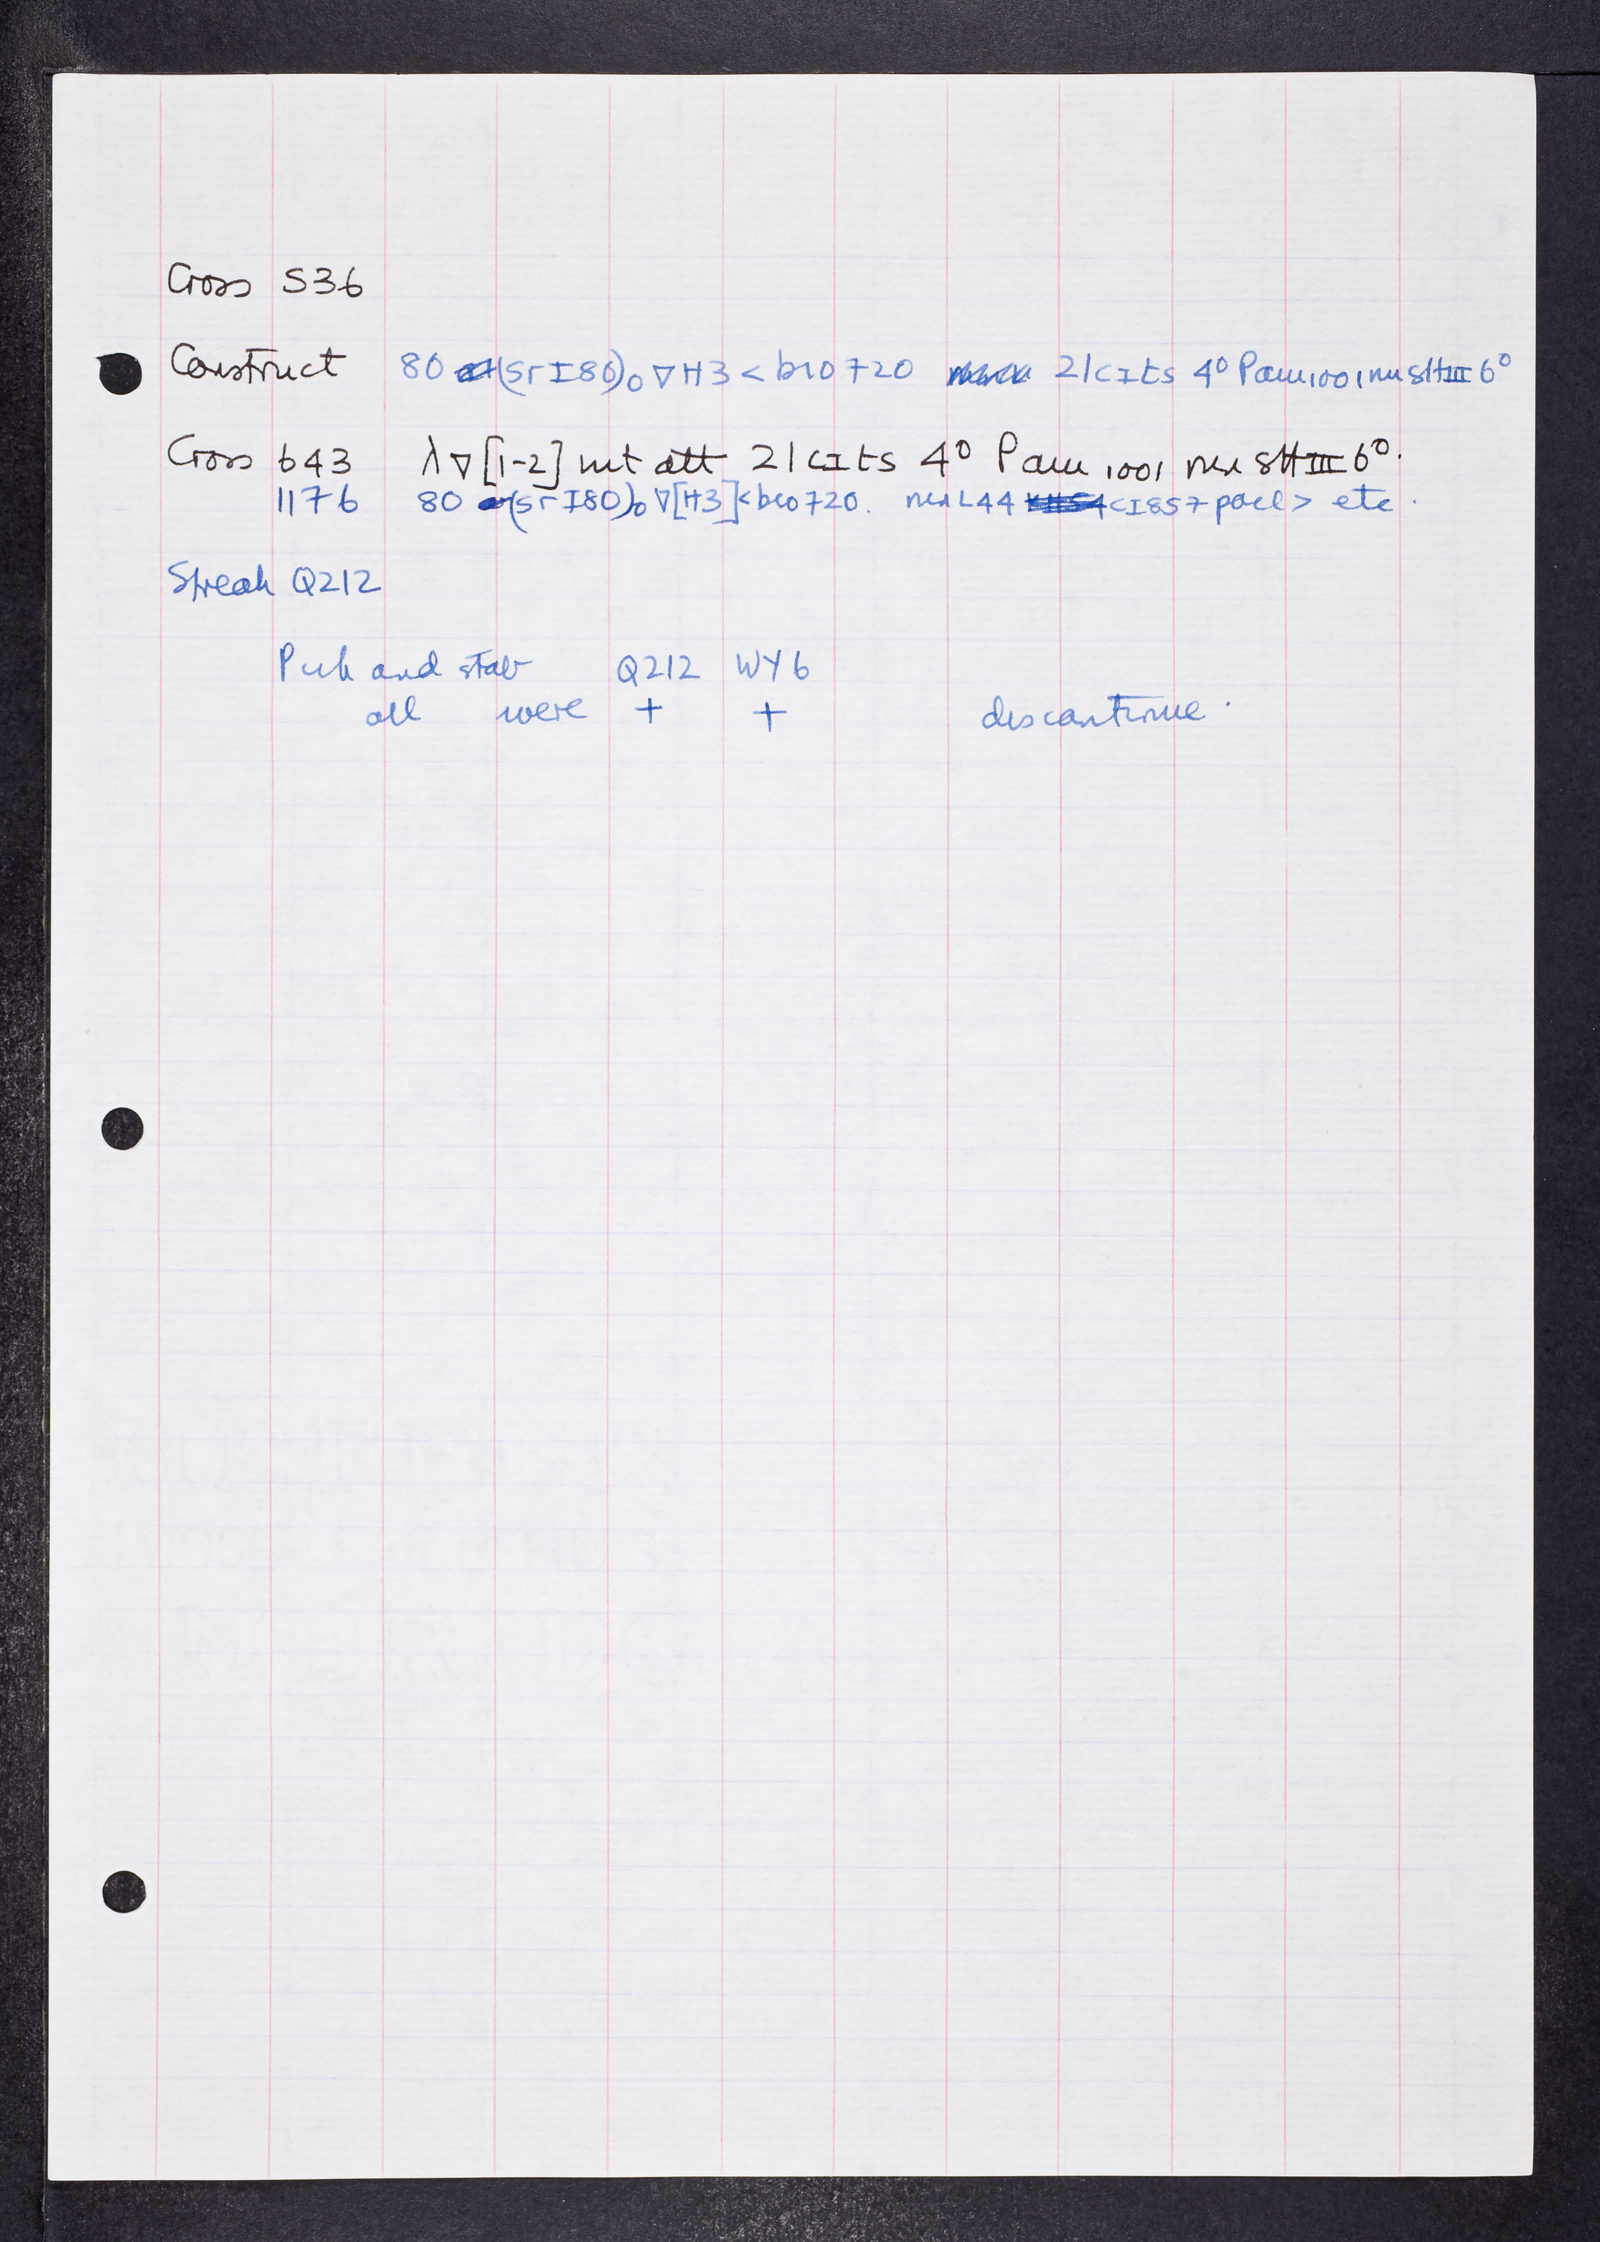 Cross 536
Construct 80 (srI80)₀ ∇H3 < bio 720 21cIts 4⁰ Pam1001 nin 5HIII 6⁰
Cross 643 λ∇[1-2] int att 21cIts 4⁰ Pam 1001 nin 5HIII 6⁰.
1176 80 (srI80)₀ ∇[H3]<bio 720. nin L44 cI857 pacl > etc.
Streak Q212
Pick and stab Q212 WY6
all were + + discontinue.